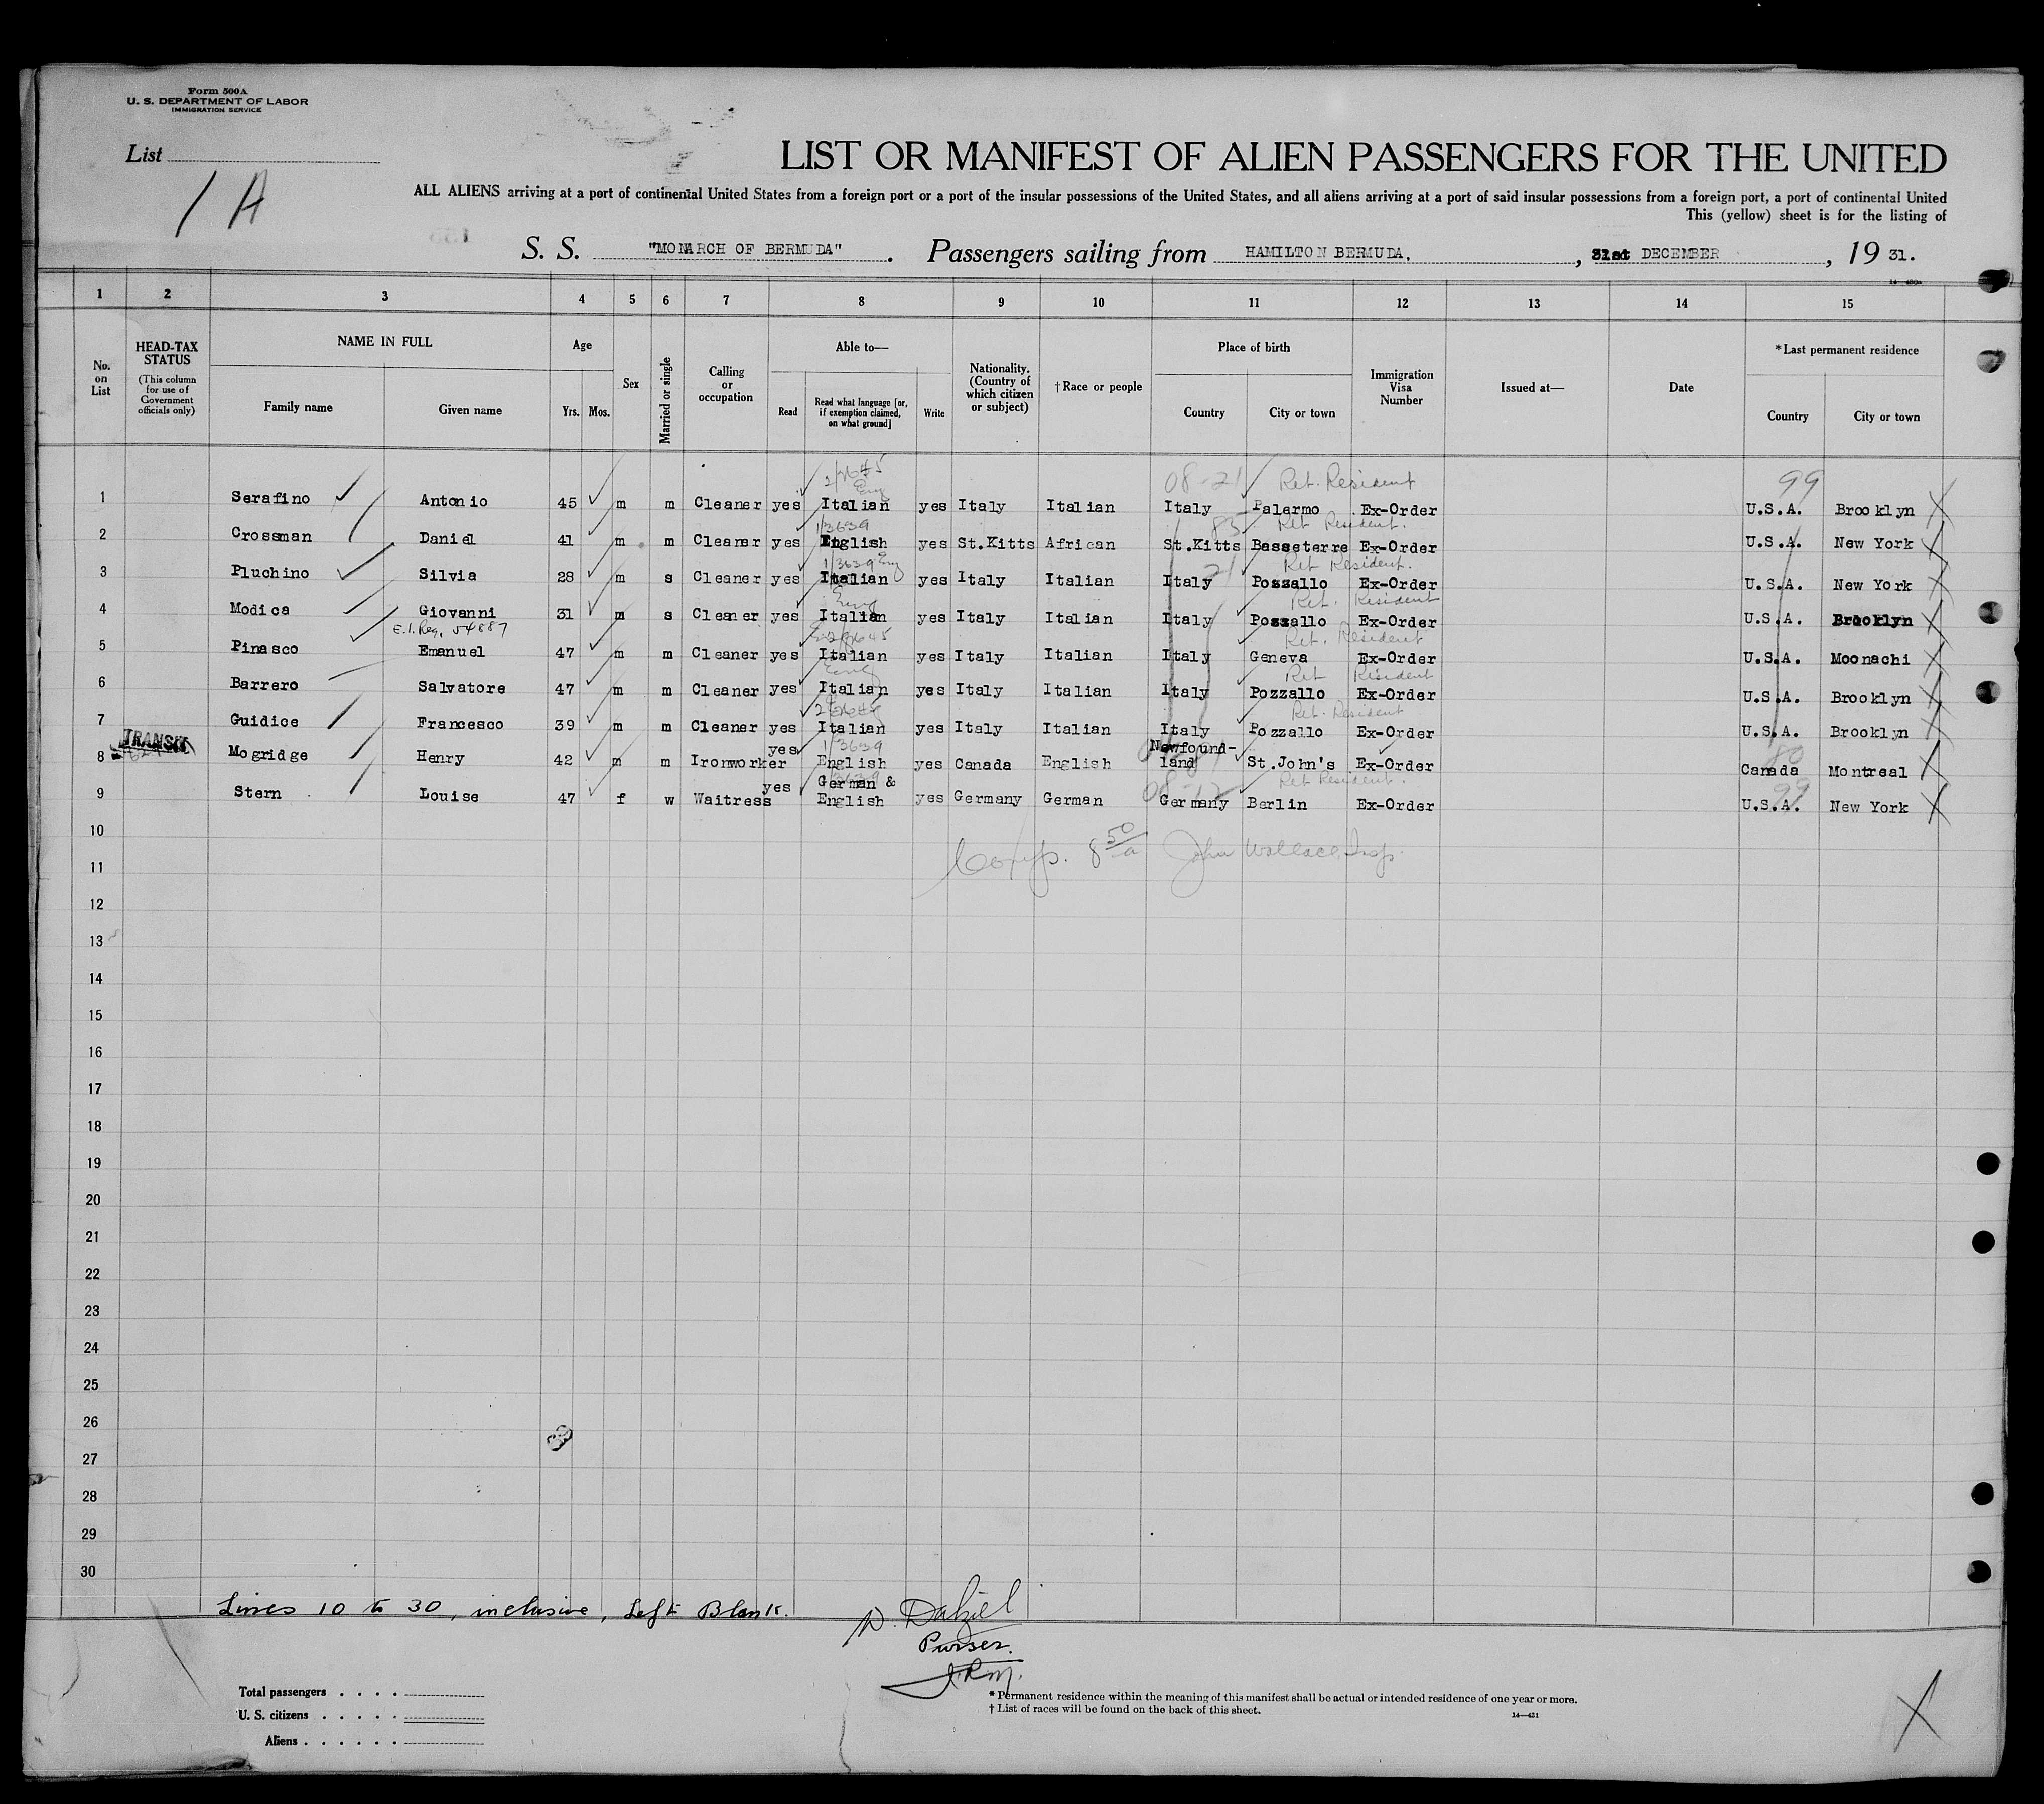 Form 500A
U. S. DEPARTMENT OF LABOR
IMMIGRATION SERVICE
List
1 A
LIST OR MANIFEST OF ALIEN PASSENGERS FOR THE UNITED
ALL ALIENS arriving at a port of continental United States from a foreign port or a port of the insular possessions of the United States, and all aliens arriving at a port of said insular possessions from a foreign port, a port of continental United
This (yellow) sheet is for the listing of
S. S. "MONARCH OF BERMUDA". Passengers sailing from HAMILTON BERMUDA, 31st DECEMBER, 19 31.
1 2 3 4 5 6 7 8 9 10 11 12 13 14 15
No. on List
HEAD-TAX STATUS (This column for use of Government officials only)
NAME IN FULL
Family name Given name
Age
Yrs. Mos.
Sex
Married or single
Calling or occupation
Able to—
Read Read what language [or, if exemption claimed, on what ground] Write
Nationality. (Country of which citizen or subject)
† Race or people
Place of birth
Country City or town
Immigration Visa Number
Issued at—
Date
* Last permanent residence
Country City or town
2/3645 Eng 08-21 Ret. Resident 99
1 Serafino Antonio 45 m m Cleaner yes Italian yes Italy Italian Italy Palermo Ex-Order U.S.A. Brooklyn
1/3639 85 Ret Resident.
2 Crossman Daniel 41 m m Cleaner yes English yes St.Kitts African St.Kitts Basseterre Ex-Order U.S.A. New York
1/3639 Eng 21 Ret Resident.
3 Pluchino Silvia 28 m s Cleaner yes Italian yes Italy Italian Italy Pozzallo Ex-Order U.S.A. New York
Eng Ret. Resident
4 Modica Giovanni 31 m s Cleaner yes Italian yes Italy Italian Italy Pozzallo Ex-Order U.S.A. Brooklyn
E.I. Reg. 54887 Ret. Resident
5 Pinasco Emanuel 47 m m Cleaner yes Italian yes Italy Italian Italy Geneva Ex-Order U.S.A. Moonachi
Eng Ret Resident
6 Barrero Salvatore 47 m m Cleaner yes Italian yes Italy Italian Italy Pozzallo Ex-Order U.S.A. Brooklyn
Ret. Resident
7 Guidice Francesco 39 m m Cleaner yes Italian yes Italy Italian Italy Pozzallo Ex-Order U.S.A. Brooklyn
TRANSIT 1/3639 80
8 Mogridge Henry 42 m m Ironworker yes English yes Canada English Newfound-land St.John's Ex-Order Canada Montreal
3639 08-12 Ret Resident. 99
9 Stern Louise 47 f w Waitress yes German & English yes Germany German Germany Berlin Ex-Order U.S.A. New York
10
Comp. 8 50/a John Wallace, Insp.
11
12
13
14
15
16
17
18
19
20
21
22
23
24
25
26
27
28
29
30
Lines 10 to 30, inclusive, Left Blank.
N. Dalziel
Purser.
J.R.M.
Total passengers
U. S. citizens
Aliens
* Permanent residence within the meaning of this manifest shall be actual or intended residence of one year or more.
† List of races will be found on the back of this sheet.
14—431